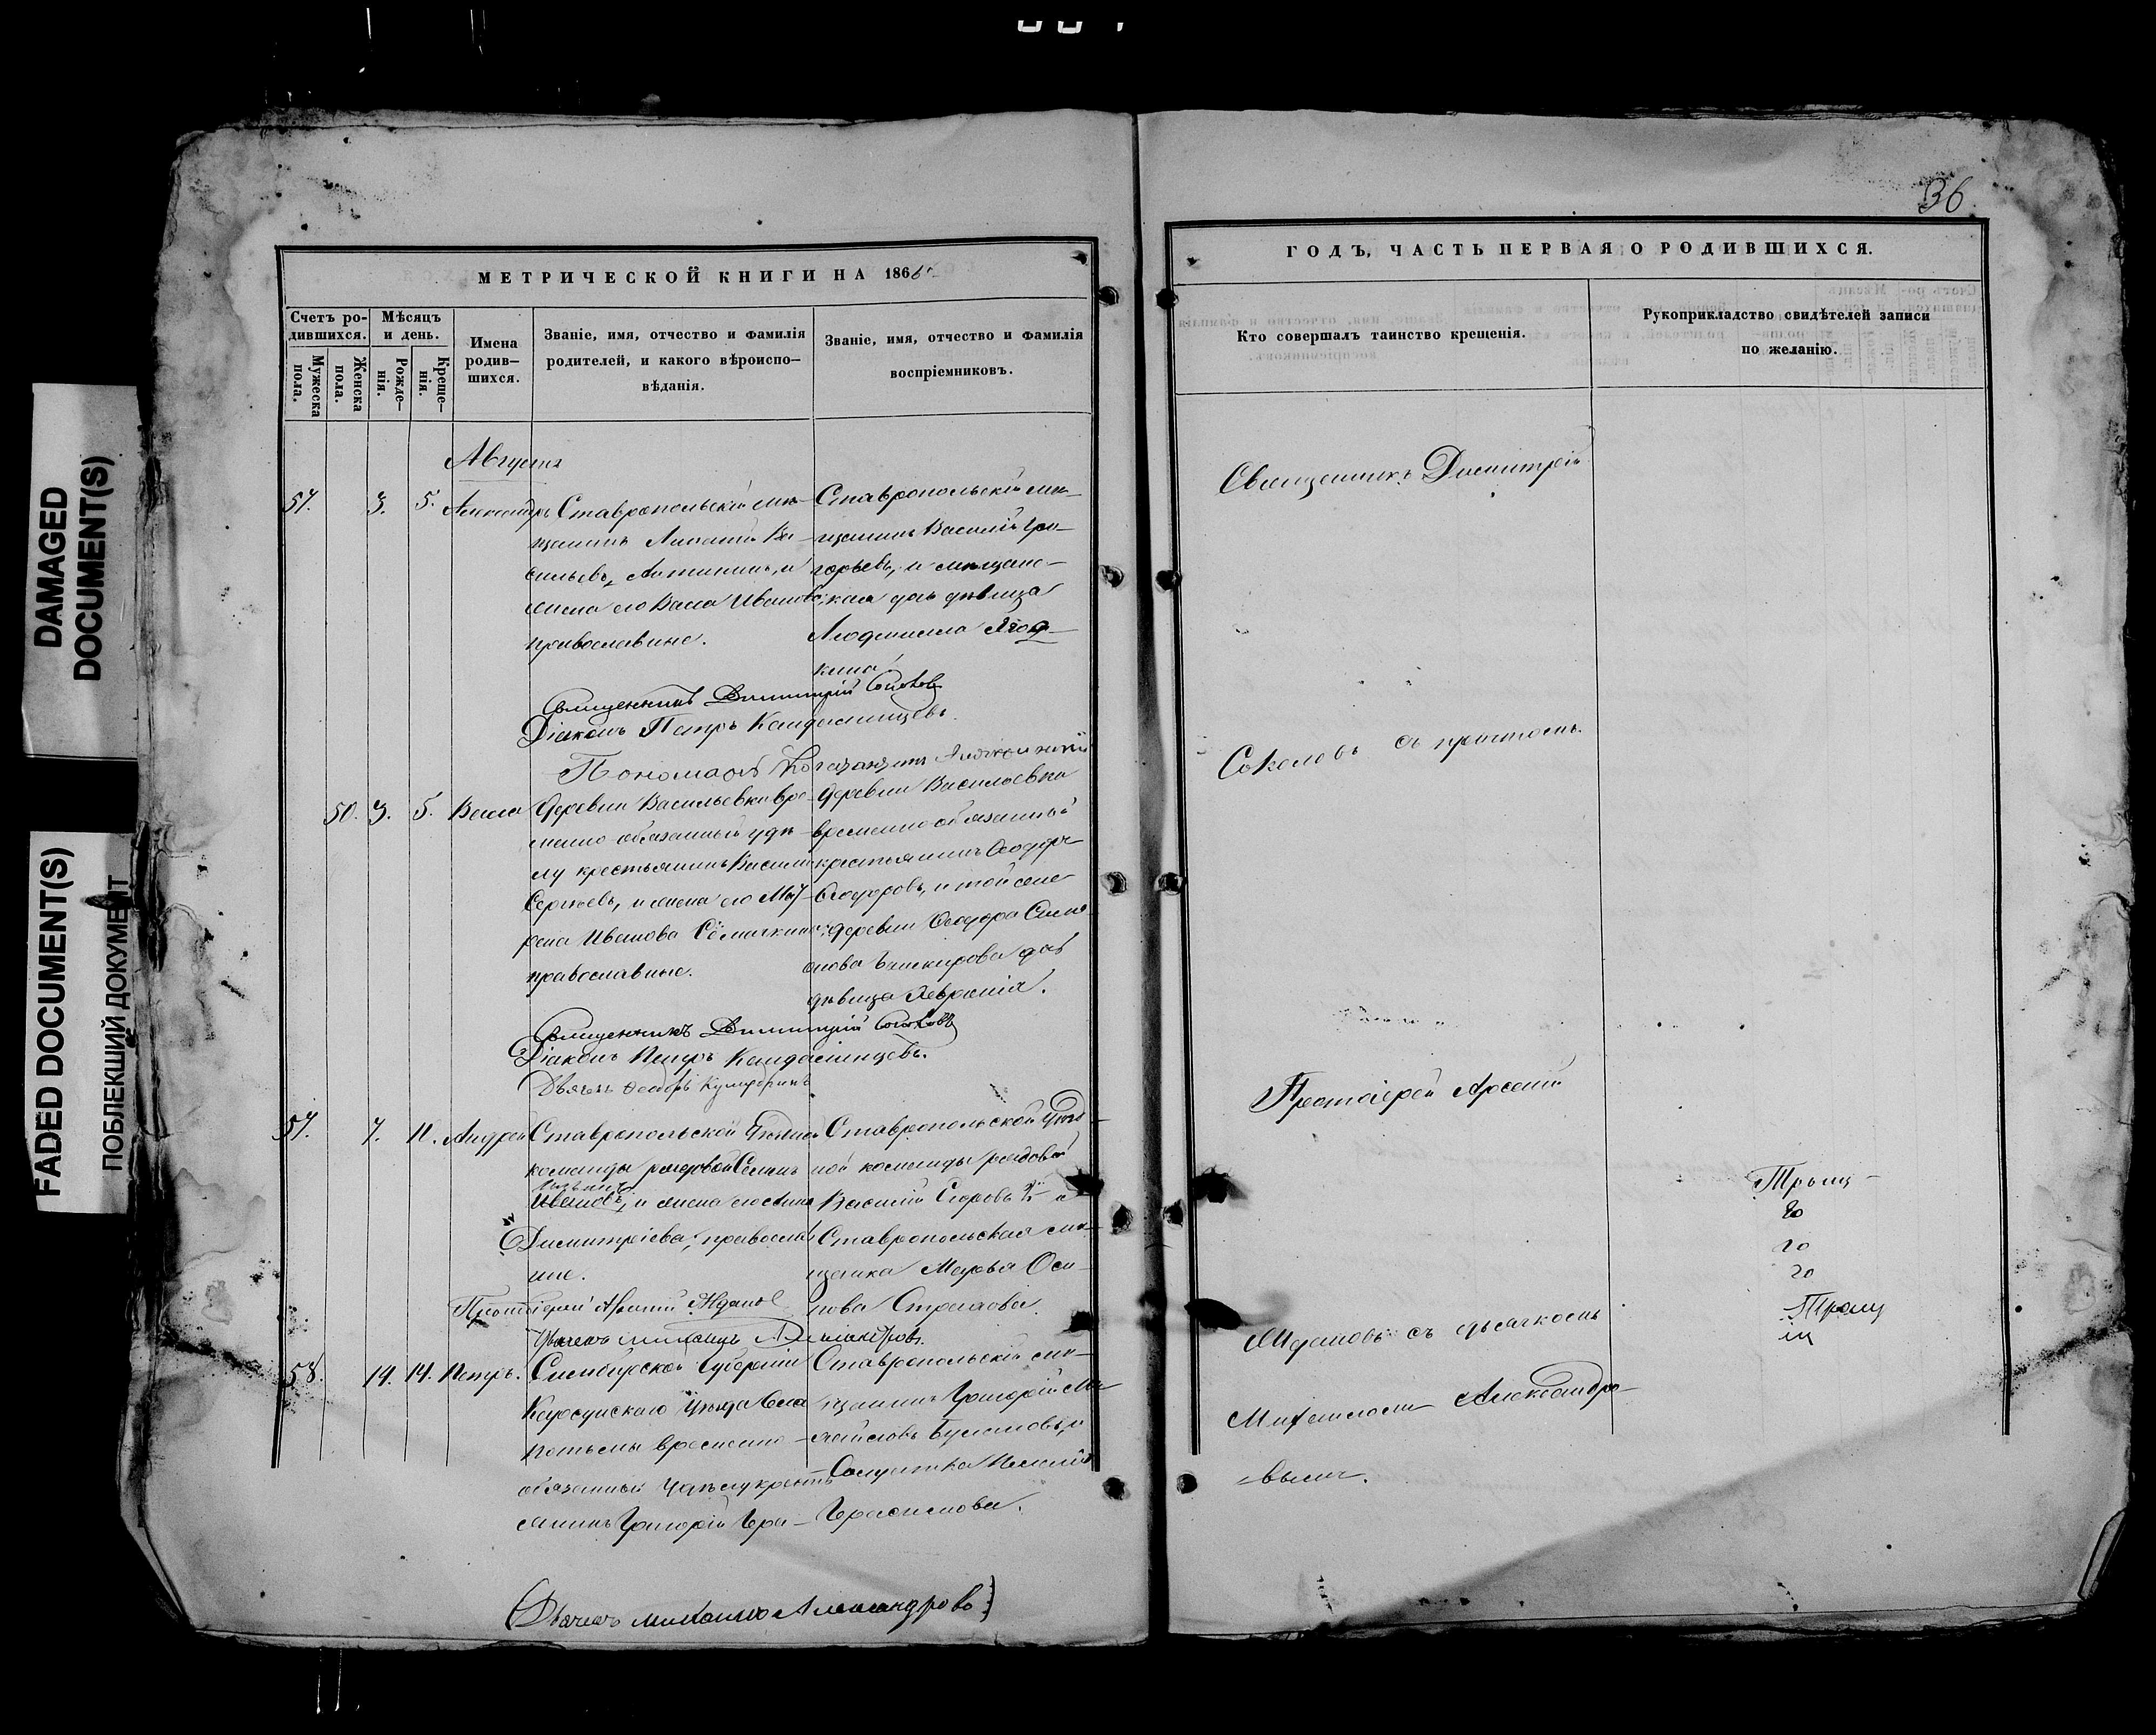 DAMAGED
DOCUMENT(S)
FADED DOCUMENT(S)
ПОБЛЕКШИЙ ДОКУМЕНТ
36
МЕТРИЧЕСКОЙ КНИГИ НА 186
Счетъ ро-
дившихся.
Мужеска
пола.
Женска
пола.
Мѣсяцъ
и день.
Рожде-
нія.
Креще-
нія.
Имена
родив-
шихся.
Званіе, имя, отчество и фамилія
родителей, и какого вѣроиспо-
вѣданія.
Званіе, имя, отчество и фамилія
воспріемниковъ.
Августа
57. 3. 5. Александръ
Ставропольскій мѣ-
щанинъ Ва-
сильевъ, и
жена его Васса Иванова,
православные.
Ставропольскій мѣ-
щанинъ Василій Гри-
горьевъ, и мѣщан-
ская дочь дѣвица
Людмилла Ягод-
кина
Священникъ Димитрій Соколовъ
Діаконъ Петръ
Пономарь
50. 3. 5. Васса
Деревни Васильевки вре-
менно обязанный удѣ-
лу крестьянинъ Василій
Сергѣевъ, и жена его Мат-
рена Иванова
православные.
Деревни Васильевки
временно обязанный
крестьянинъ Ѳеодоръ
Ѳеодоровъ, и той же
деревни Ѳеодора Симе-
онова Башкирова дочь
дѣвица Евфросинія.
Священникъ Димитрій Соколовъ
Діаконъ Петръ
Дьячекъ
57. 7. 11. Андрей
Ставропольской Уѣздной
команды рядовой
Ивановъ, и жена его Анна
Димитріева, православ
ные.
Ставропольской Уѣзд-
ной команды рядовой
Василій Егоровъ и
Ставропольская мѣ-
щанка Марѳа Оси-
пова
Протоіерей Арсеній Ждановъ
Дьячекъ Михаилъ Александровъ.
58. 14. 14. Петръ.
Симбирской Губерніи
Корсунскаго Уѣзда Села
временно-
обязанный Удѣлу кресть
янинъ Григорій Гера-
Ставропольскій мѣ-
щанинъ Григорій Ми-
хайловъ и
Солдатка Пелагія
Герасимова.
(Дьячекъ Михаилъ Александровъ)
ГОДЪ, ЧАСТЬ ПЕРВАЯ О РОДИВШИХСЯ.
Кто совершалъ таинство крещенія.
Рукоприкладство свидѣтелей записи
по желанію.
Священникъ Димитрій
Соколовъ съ причтомъ.
Протоіерей Арсеній
Ждановъ съ дьячкомъ
Михаиломъ Александро-
вымъ.
20
20